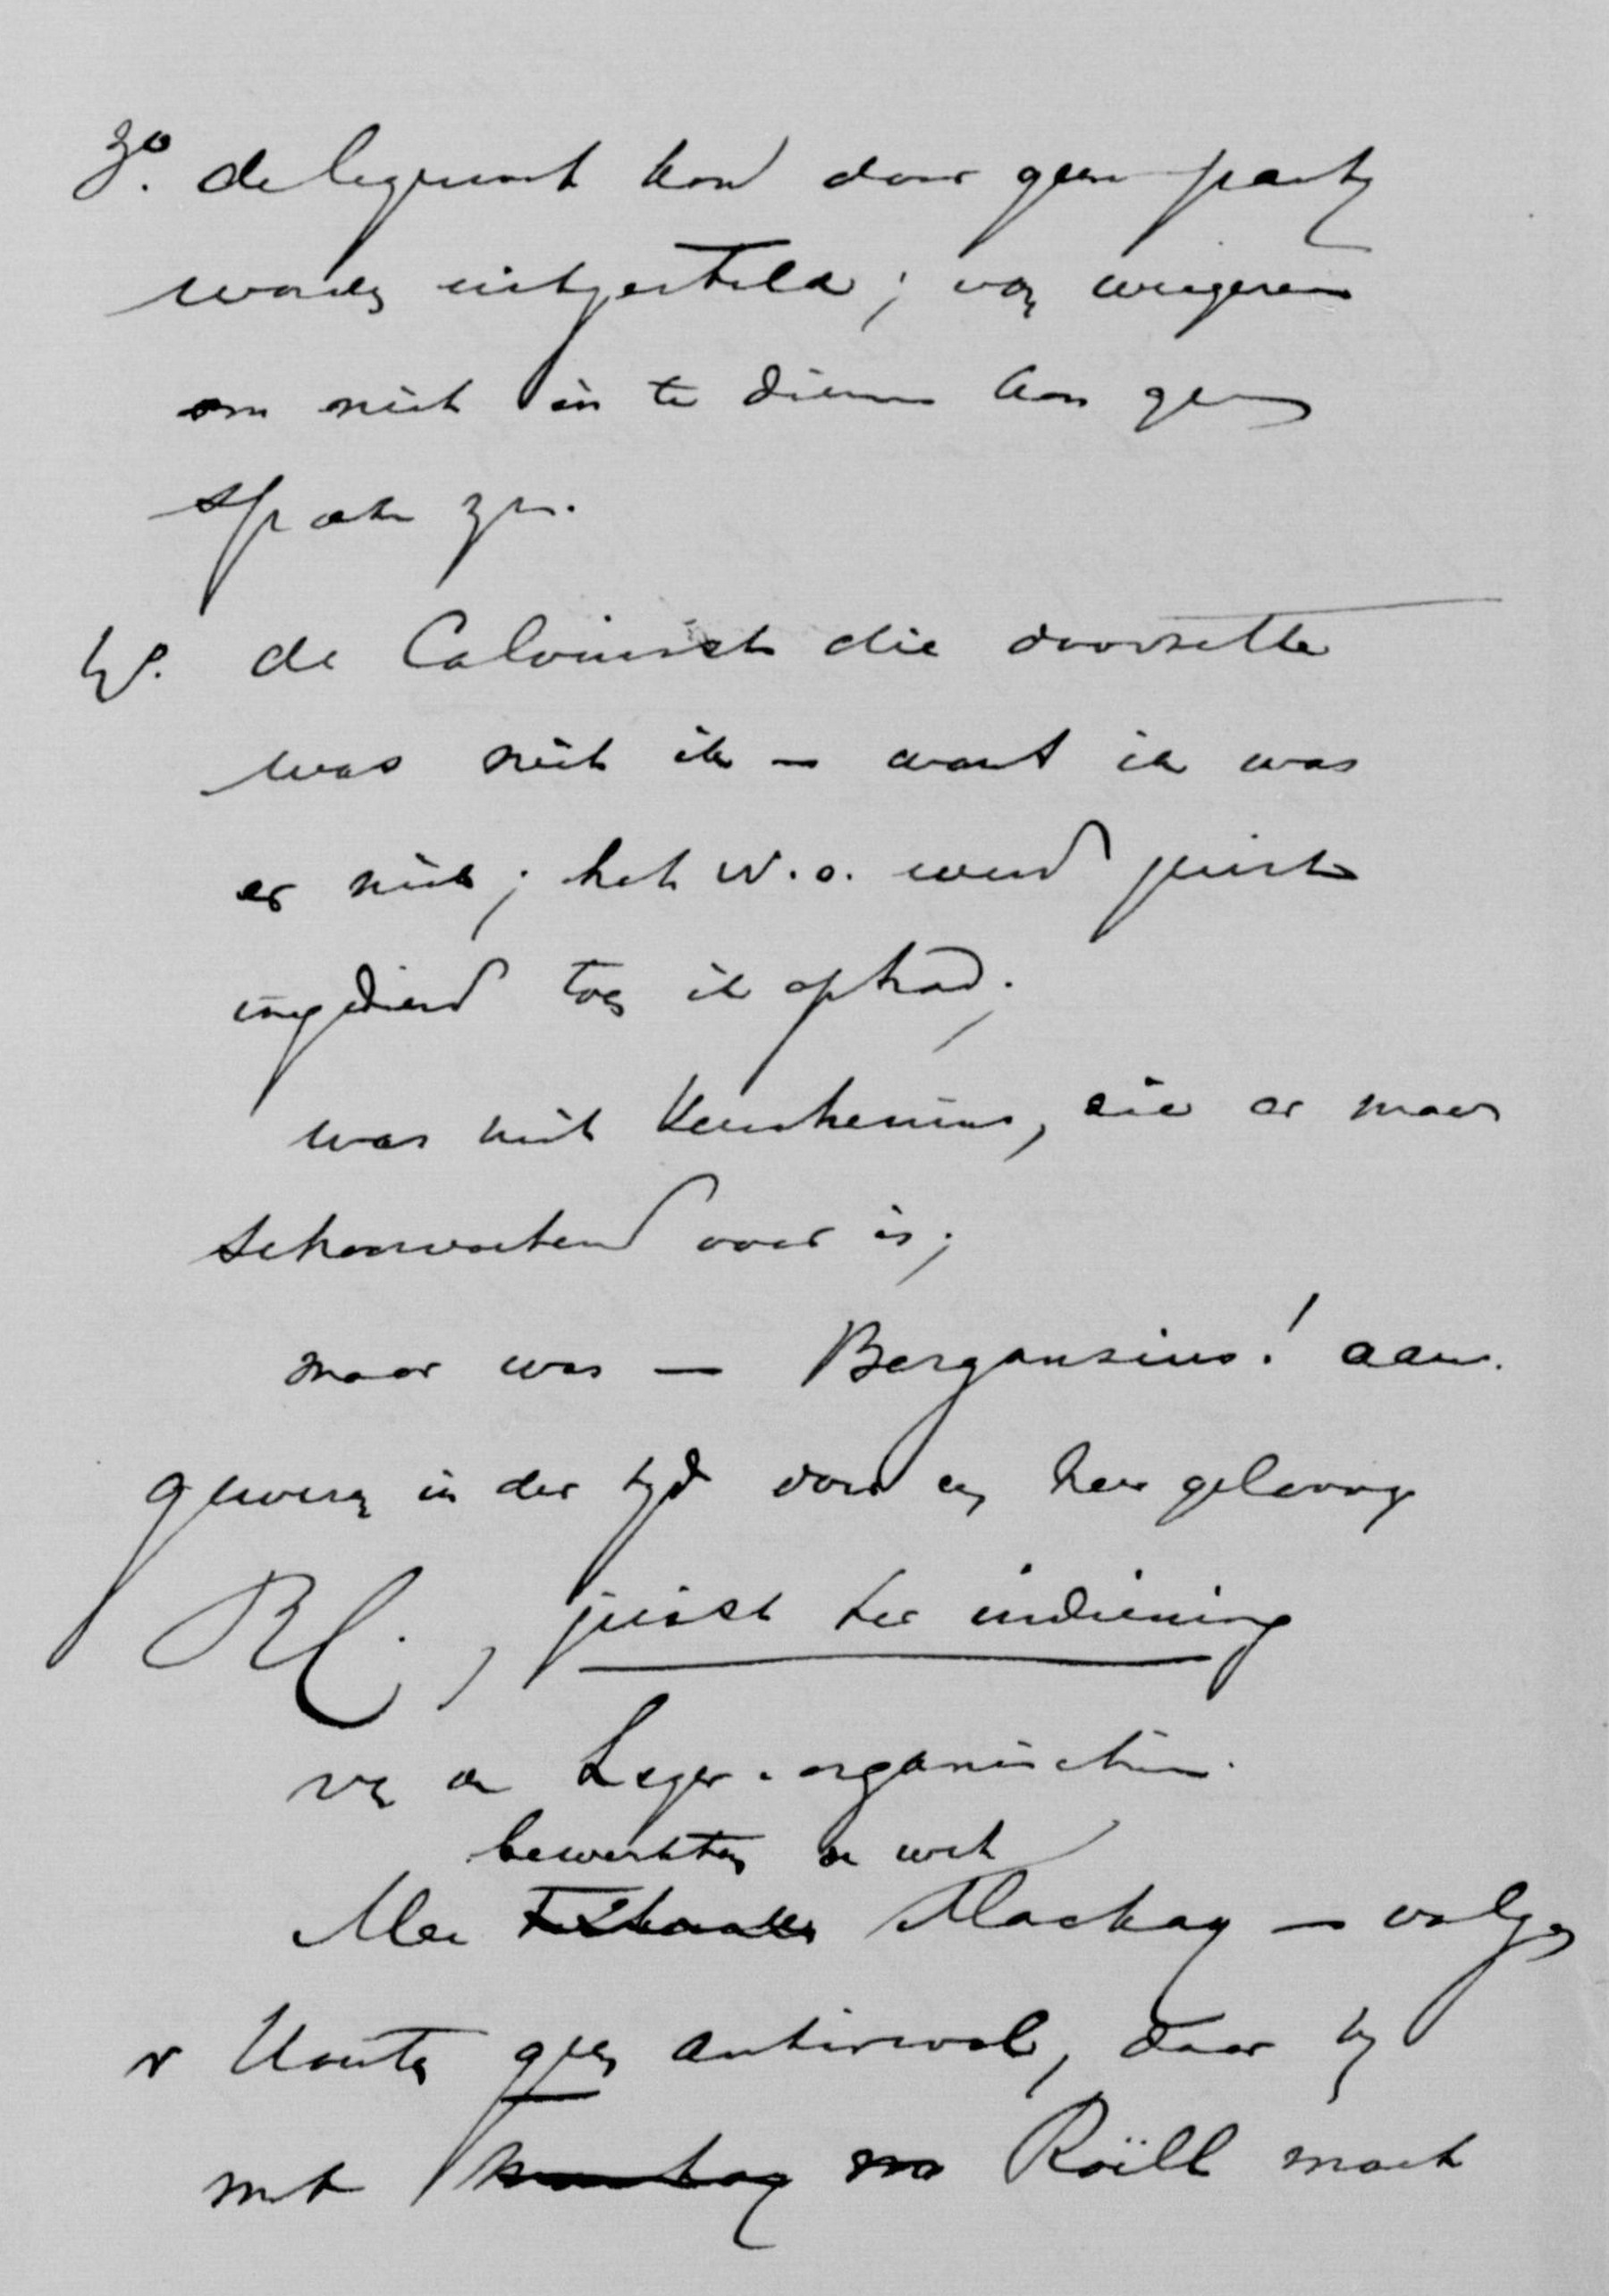 3º. de legerwet kon door geen partij
worden uitgesteld; van weigeren
om niet in te dienen kon geen
sprake zijn.
4º. de Calvinist die doorzette
was niet ik — want ik was
er niet; het w.o. werd juist
ingediend toen ik optrad;
was niet Keuchenius, die er maar
schoorvoetend voor is;
maar was — Bergansius! aan-
gewezen in der tijd door en heen geloovige
RC., juist ter indiening
van de Leger-organisatie.
bewerkten de wet
Mackay — volgens
v Houten geen antirevol, daar hij
met Roëll mocht